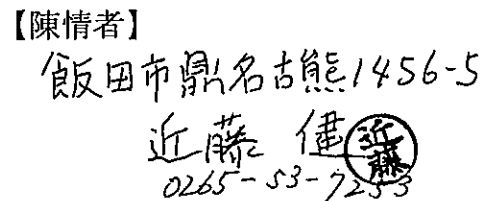 【陳情者】
飯田市鼎名古熊1456-5
近藤 健 近藤
0265-53-7253